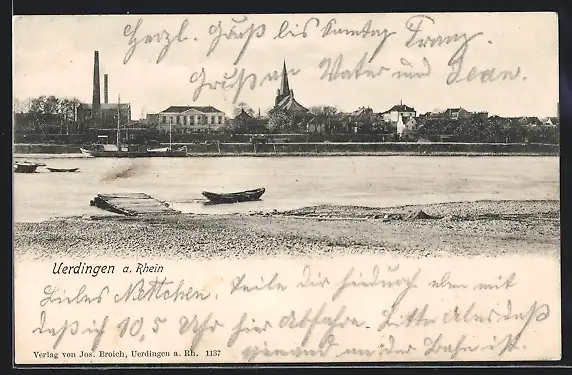 Herzl. Gruß bis Samstag Franz.
Gruß an Vater und Jean.
Uerdingen a. Rhein
Liebes Nettchen. Teile Dir hiedurch eben mit
daß ich 10,5 Uhr hier Abfahre. Bitte Alles daß
Jemand an der Bahn ist.
Verlag von Jos. Broich, Uerdingen a. Rh. 1137